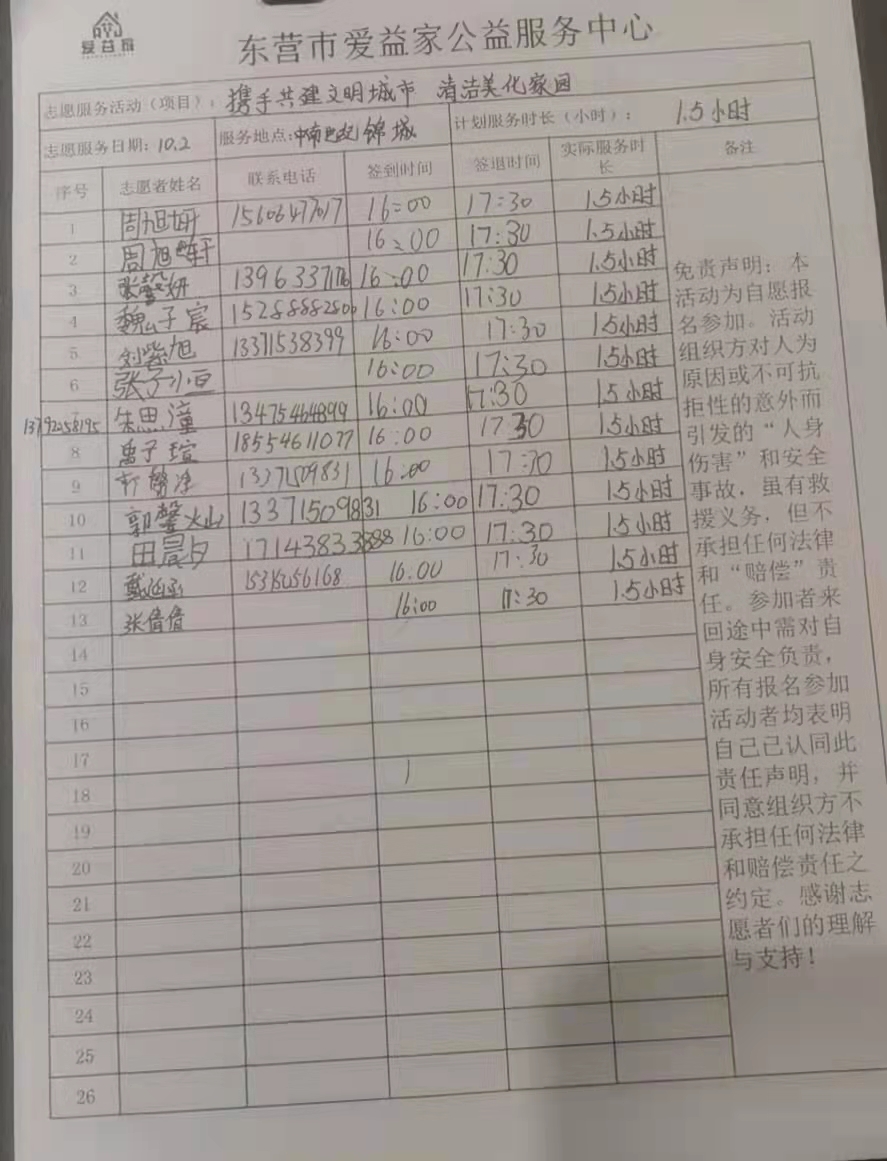 爱益家
东营市爱益家公益服务中心
志愿服务活动（项目）：携手共建文明城市 清洁美化家园
志愿服务日期：10.2 服务地点：中南世纪锦城 计划服务时长（小时）： 1.5小时
序号 志愿者姓名 联系电话 签到时间 签退时间 实际服务时长 备注
1 周旭妍 15606477017 16:00 17:30 1.5小时
2 周旭 16:00 17:30 1.5小时
3 张馨妍 13963371 16:00 17:30 1.5小时
4 魏子宸 15288882800 16:00 17:30 1.5小时
5 刘紫旭 13371538399 16:00 17:30 1.5小时
6 张子小亘 16:00 17:30 1.5小时
13792058195 7 朱思潼 13475464899 16:00 17:30 1.5小时
8 禹子瑄 18554611077 16:00 17:30 1.5小时
9 13371509831 16:00 17:30 1.5小时
10 郭馨 13371509831 16:00 17:30 1.5小时
11 田晨夕 16:00 17:30 1.5小时
12 16:00 17:30 1.5小时
13 张倩倩 16:00 17:30 1.5小时
14
15
16
17
18
19
20
21
22
23
24
25
26
免责声明：本
活动为自愿报
名参加。活动
组织方对人为
原因或不可抗
拒性的意外而
引发的“人身
伤害”和安全
事故，虽有救
援义务，但不
承担任何法律
和“赔偿”责
任。参加者来
回途中需对自
身安全负责，
所有报名参加
活动者均表明
自己已认同此
责任声明，并
同意组织方不
承担任何法律
和赔偿责任之
约定。感谢志
愿者们的理解
与支持！